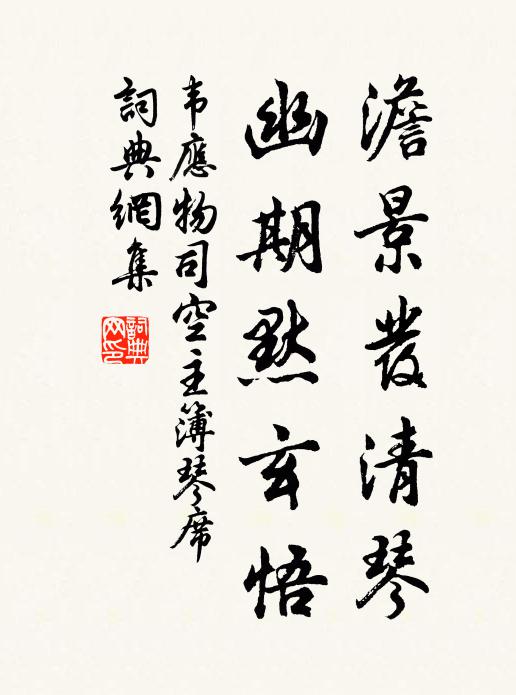 澹景發清琴
幽期默玄悟
韦應物司空主簿琴席
詞典網集
詞典网印